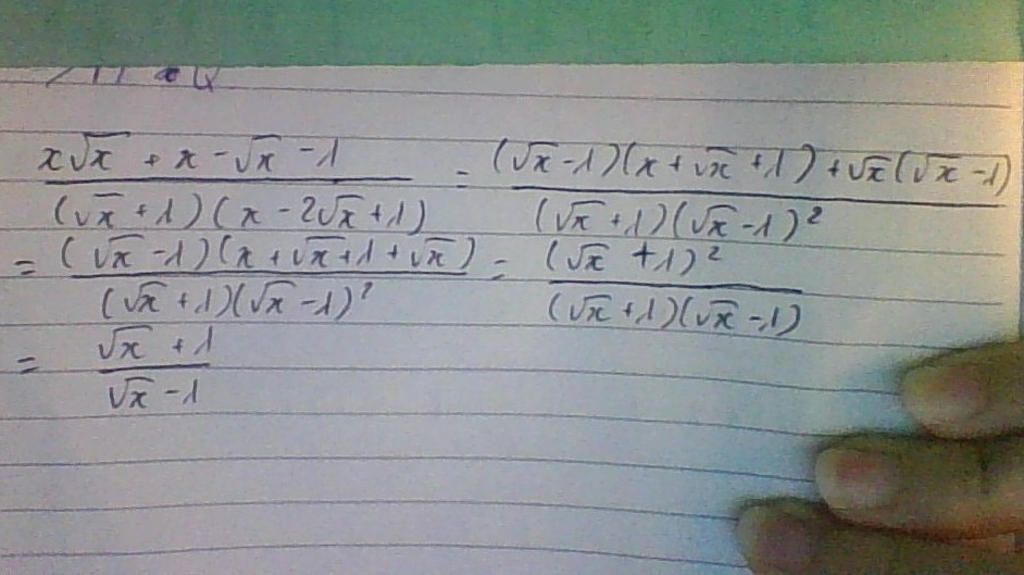 x√x + x - √x - 1 / (√x + 1)(x - 2√x + 1) = (√x - 1)(x + √x + 1) + √x(√x - 1) / (√x + 1)(√x - 1)²
= (√x - 1)(x + √x + 1 + √x) / (√x + 1)(√x - 1)² = (√x + 1)² / (√x + 1)(√x - 1)
= √x + 1 / √x - 1